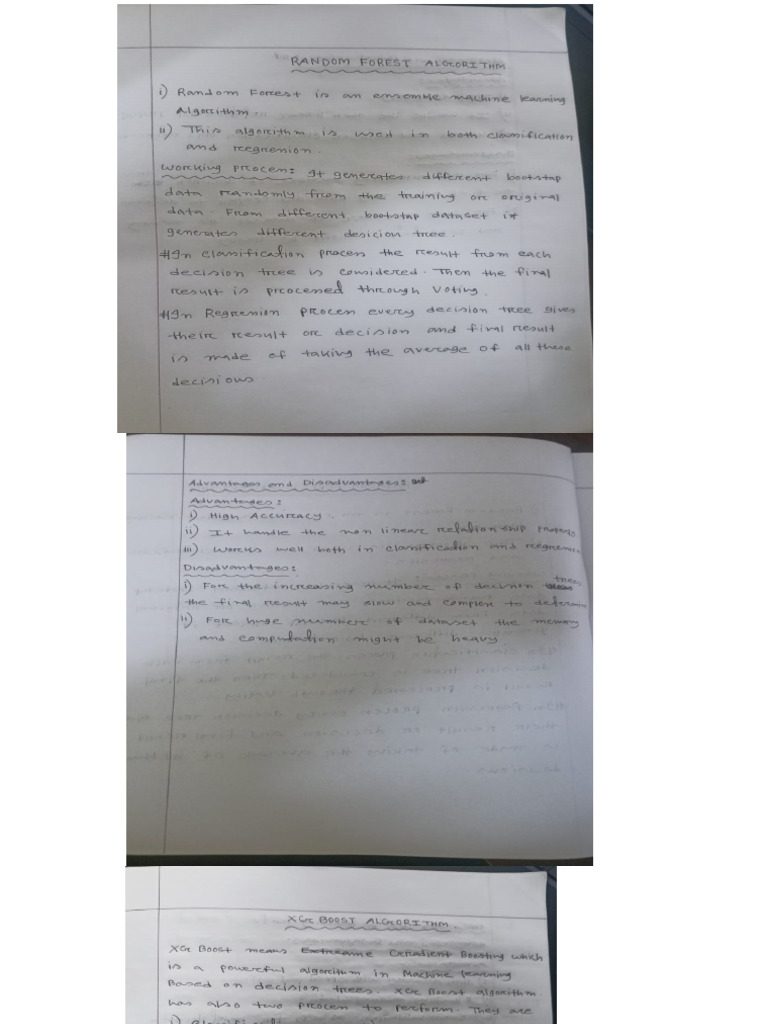 RANDOM FOREST ALGORITHM
i) Random Forest is an ensemble machine learning
Algorithm.
ii) This algorithm is used in both classification
and regression.
Working process: It generates different bootstap
data randomly from the training or original
data. From different bootstap dataset it
generates different desicion tree.
#In classification process the result from each
decision tree is considered. Then the final
result is processed through Voting.
#In Regression process every decision tree gives
their result or decision and final result
is made of taking the average of all these
decisions
Advantages and Disadvantages:
Advantages:
i) High Accuracy.
ii) It handle the non linear relationship
iii) Works well both in classification and regression
Disadvantages:
i) For the increasing number of decision trees
the final result may slow and complex to determine
ii) For huge number of dataset the memory
and computation might be heavy.
XG BOOST ALGORITHM.
XG Boost means Extreame Gradient Boosting which
is a powerful algorithm in Machine learning
Based on decision trees. XG Boost algorithm
has also two process to perform. They are